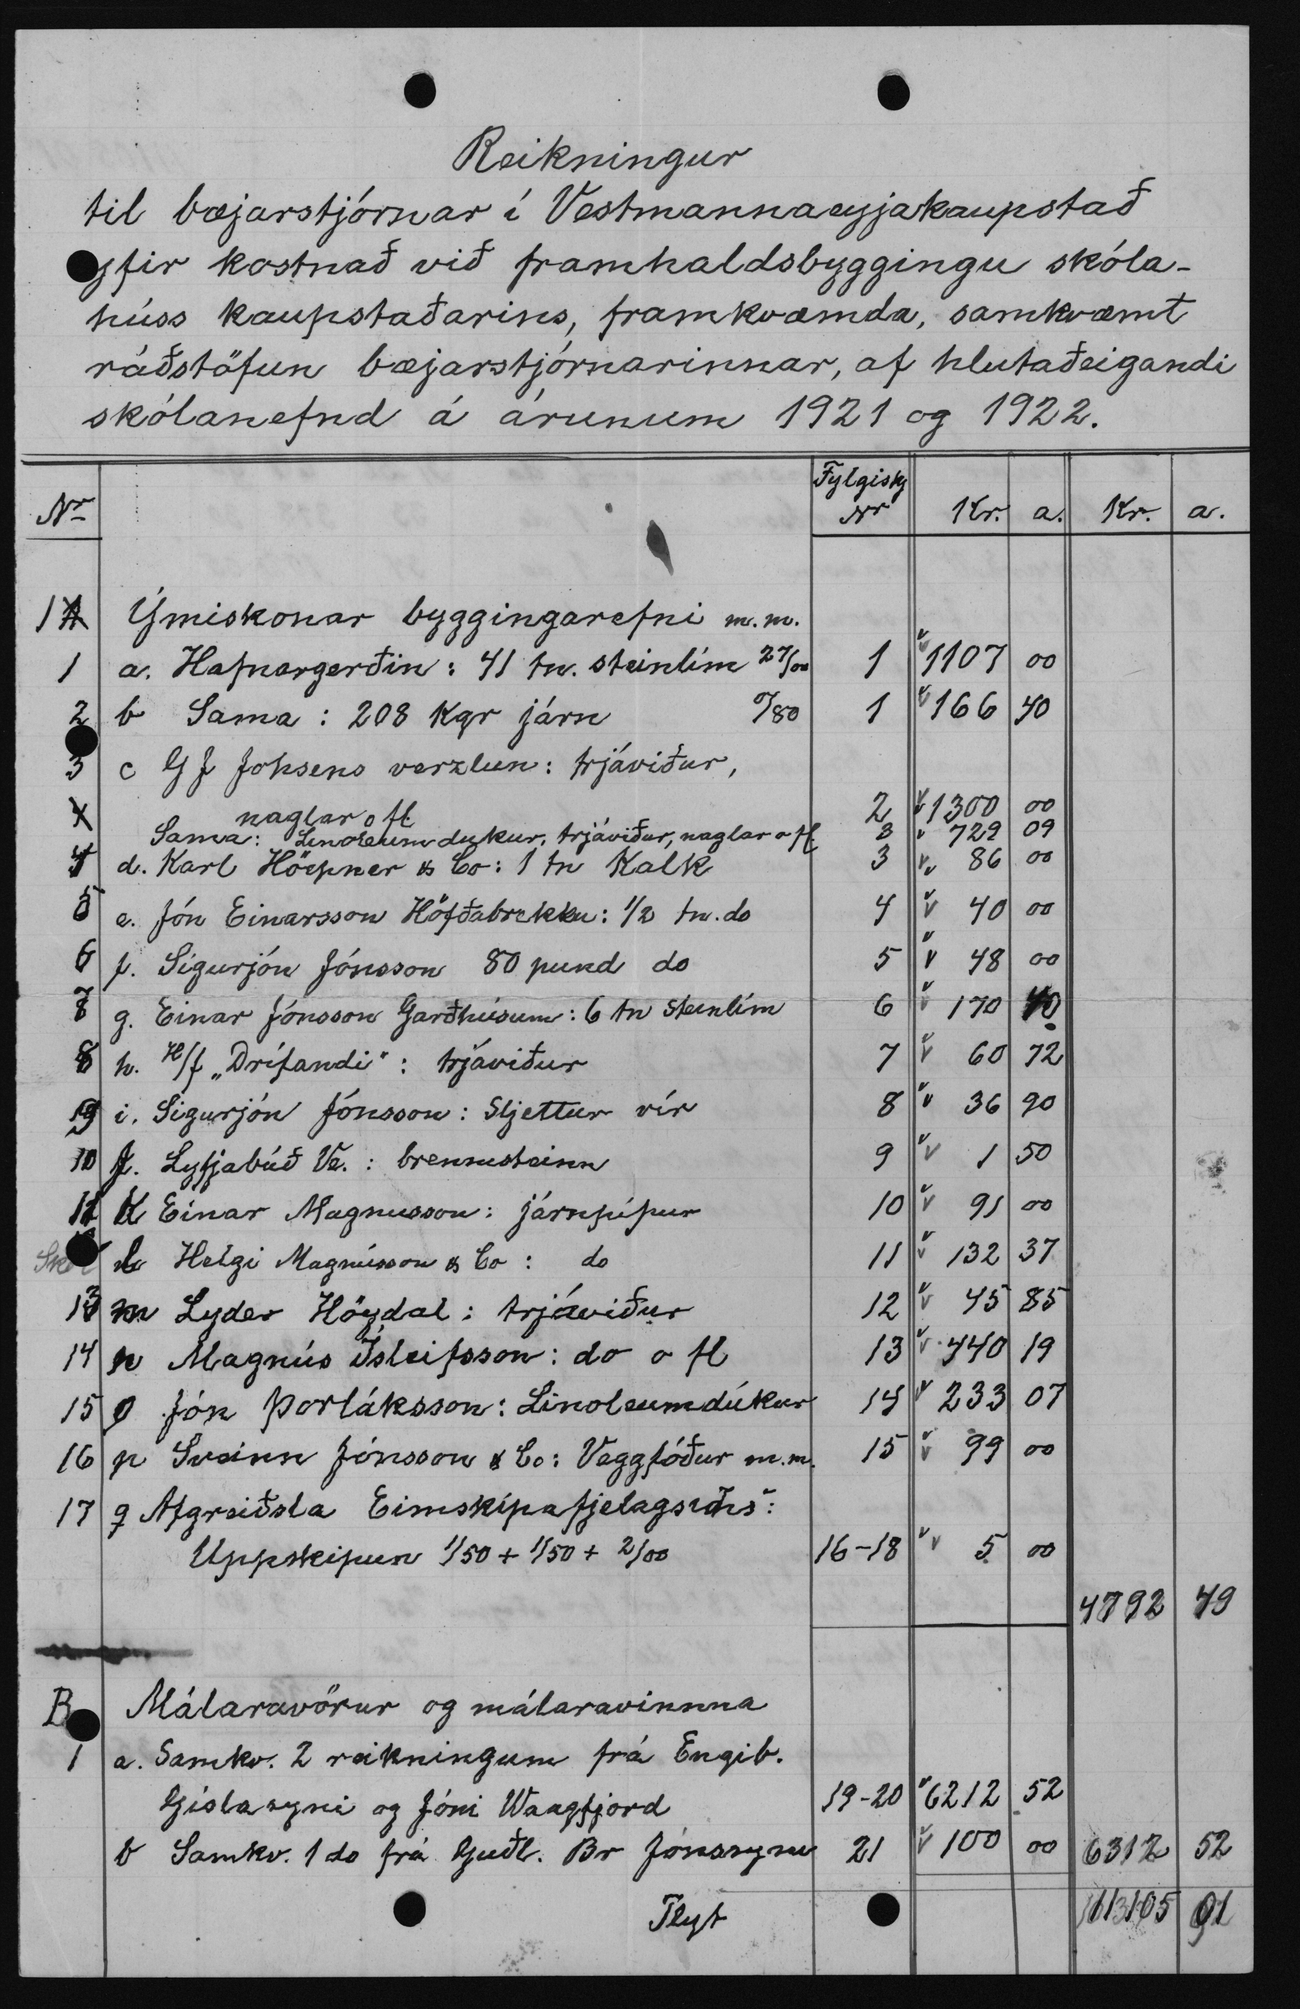 Reikningur
til bæjarstjórnar í Vestmannaeyjakaupstað
yfir kostnað við framhaldsbyggingu skóla-
húss kaupstaðarins, framkvæmda, samkvæmt
ráðstöfun bæjarstjórnarinnar, af hlutaðeigandi
skólanefnd á árunum 1921 og 1922.
Nr Fylgiskj Nr Kr. a. Kr. a.
1 A Ýmiskonar byggingarefni m.m.
1 a. Hafnargerðin: 41 tn. steinlím 27/00 1 1107 00
2 b Sama: 208 Kgr járn 0/80 1 166 40
3 c G J Johsens verzlun: trjáviður,
naglar o fl. 2 1300 00
Sama: Linoleumdukur, trjáviður, naglar o fl. 3 729 09
4 d. Karl Höepner & Co: 1 tn Kalk 3 86 00
5 e. Jón Einarsson Höfðabrekku: 1/2 tn. do 4 40 00
6 f. Sigurjón Jónsson 80 pund do 5 48 00
7 g. Einar Jónsson Garðhúsum: 6 tn steinlím 6 170 40
8 h. H/f „Drífandi": trjáviður 7 60 72
9 i. Sigurjón Jónsson: Sljettur vír 8 36 90
10 j. Lyfjabúð Ve.: brennisteinn 9 1 50
11 k Einar Magnusson: járnpípur 10 91 00
l Helgi Magnússon & Co: do 11 132 37
13 m Lyder Höydal: trjáviður 12 45 85
14 n Magnús Ísleifsson: do o fl 13 440 19
15 o Jón Þorláksson: Linoleumdúkur 14 233 07
16 p Sveinn Jónsson & Co: Veggfóður m.m. 15 99 00
17 q Afgreiðsla Eimskipafjelagsins:
Uppskipun 1/50 + 1/50 + 2/00 16-18 5 00
4792 49
B Málaravörur og málaravinnna
1 a. Samkv. 2 reikningum frá Engilb.
Gíslasyni og Jóni Waagfjord 19-20 6212 52
b Samkv. 1 do frá Guðl. Br Jónssyni 21 100 00 6312 52
Flyt 11105 01